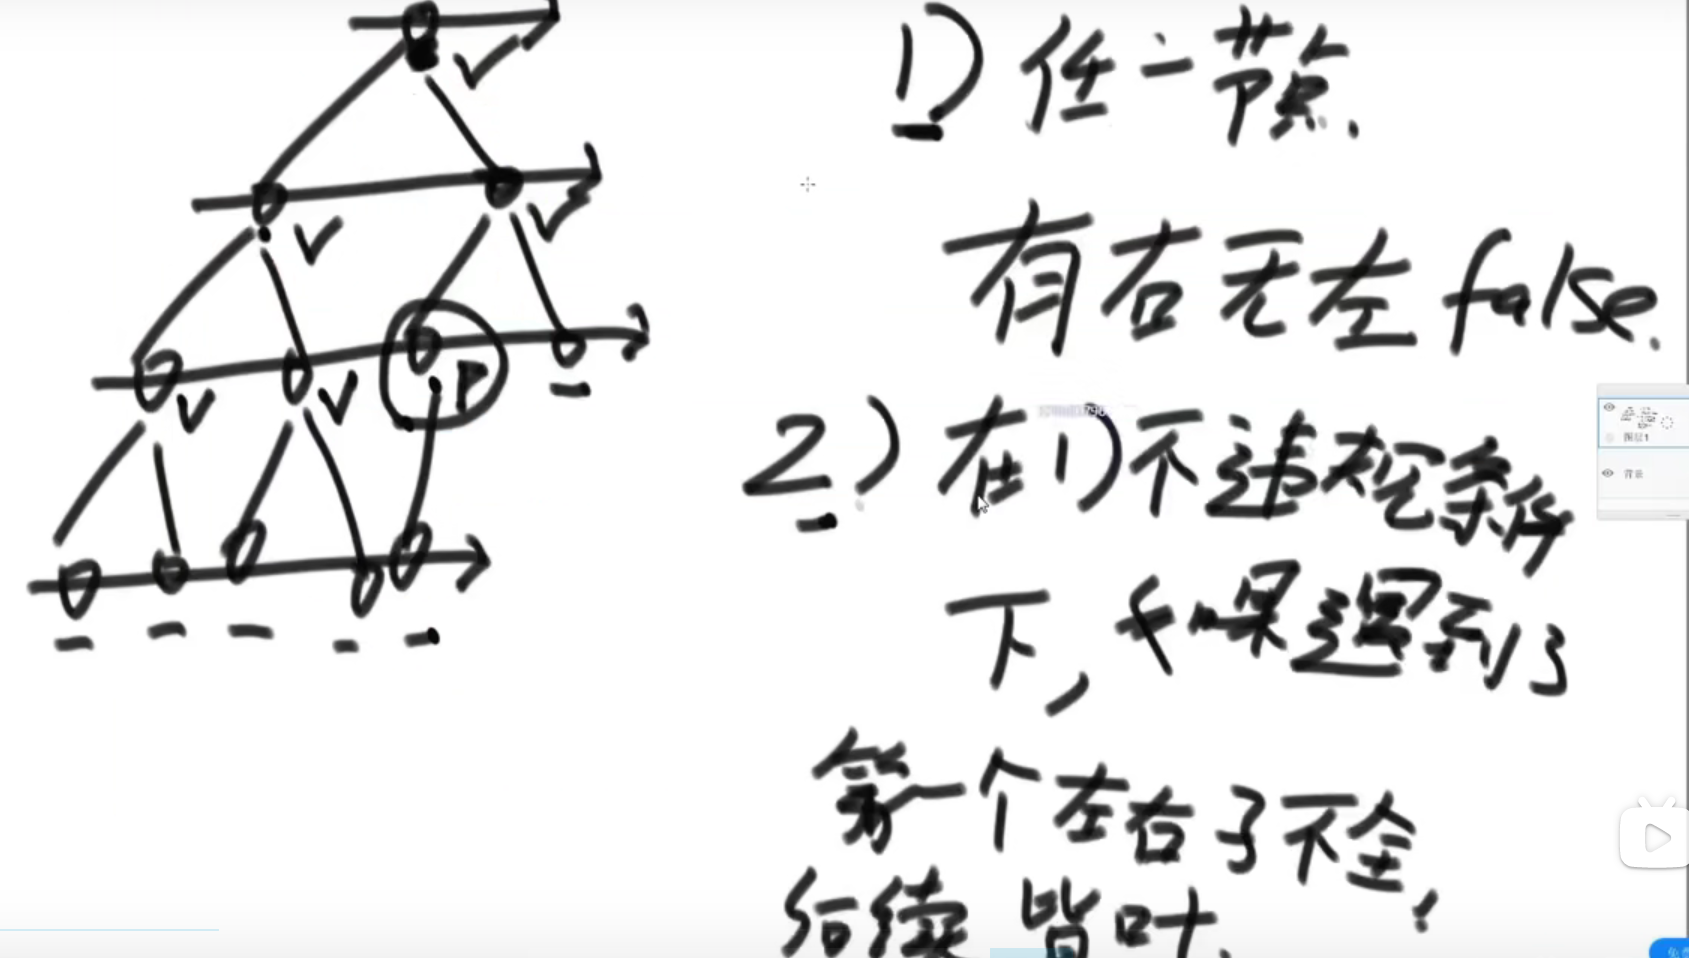 1) 任一节点.
有右无左 false.
2) 在1)不违规条件
下,如果遇到了
第一个左右子不全,
后续皆叶.
P
图层1
背景